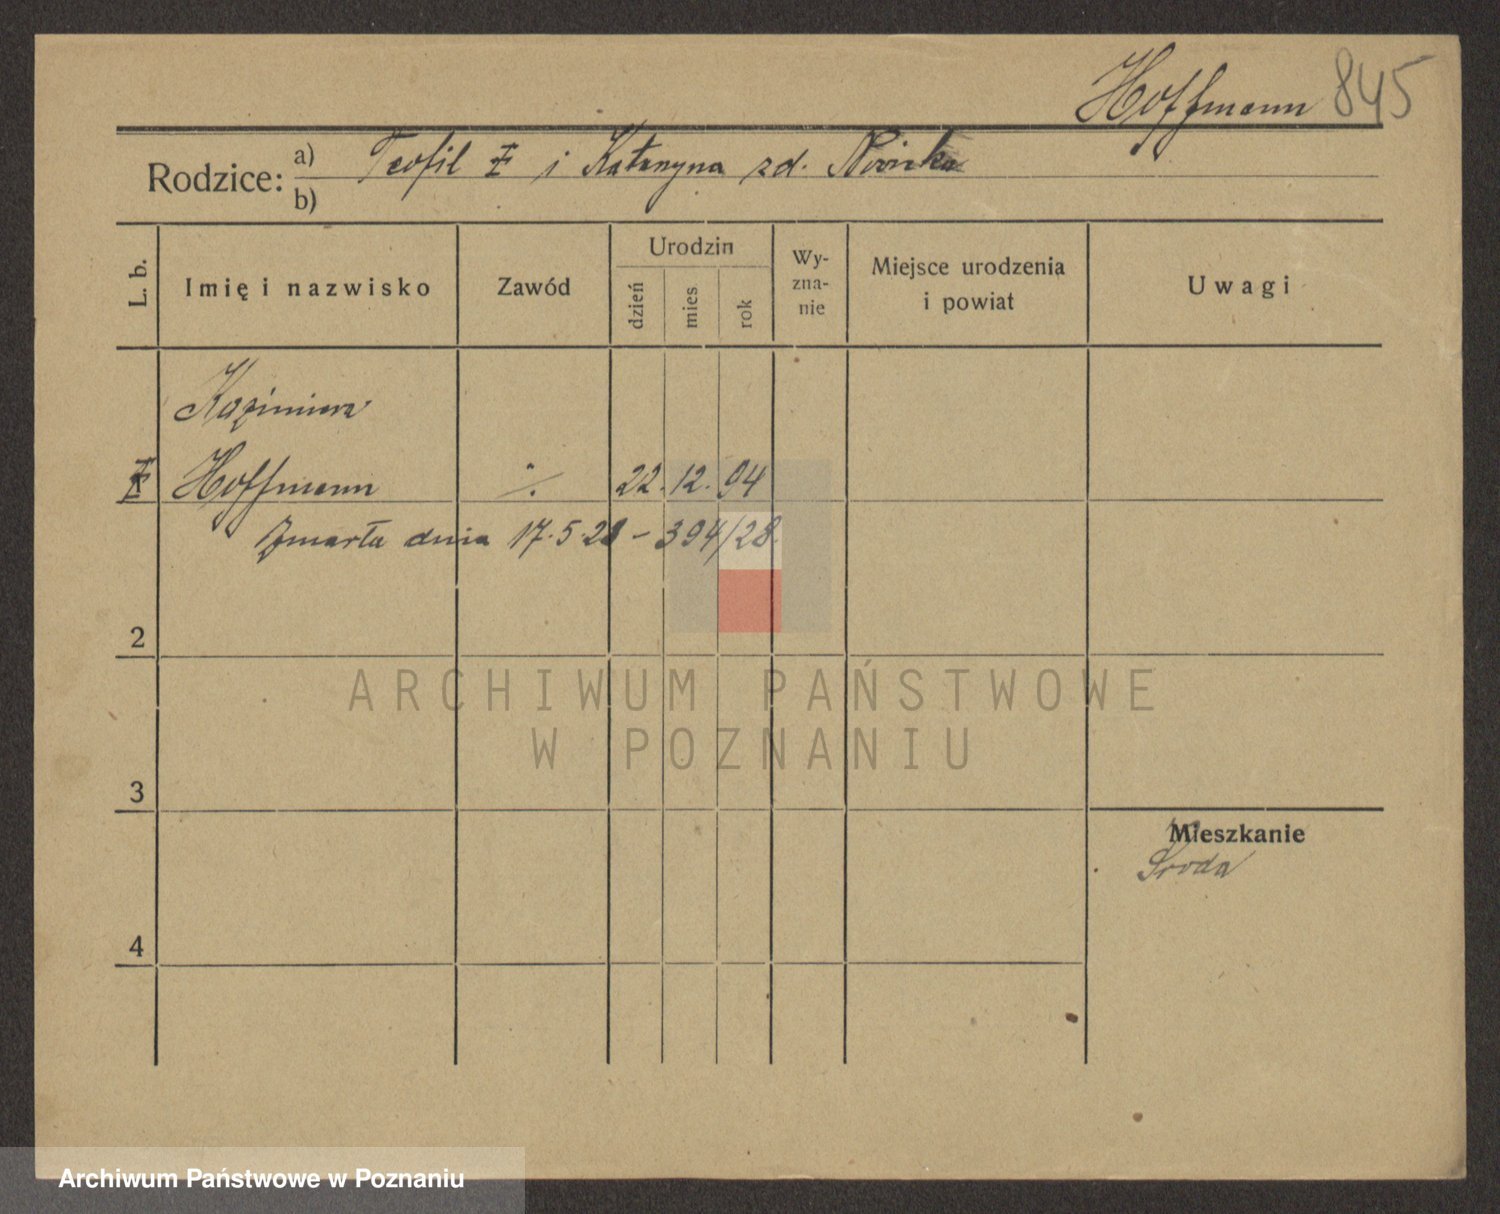 Hoffmann 845
Rodzice: a) Teofil i Katarzyna zd. Nowicka
b)
L. b. Imię i nazwisko Zawód Urodzin dzień mies. rok Wy-zna-nie Miejsce urodzenia i powiat Uwagi
Kazimiera
Hoffmann ·/. 22. 12. 04
Zmarła dnia 17.5.28 – 394/28.
2
ARCHIWUM PAŃSTWOWE
W POZNANIU
3
Mieszkanie
Środa
4
Archiwum Państwowe w Poznaniu